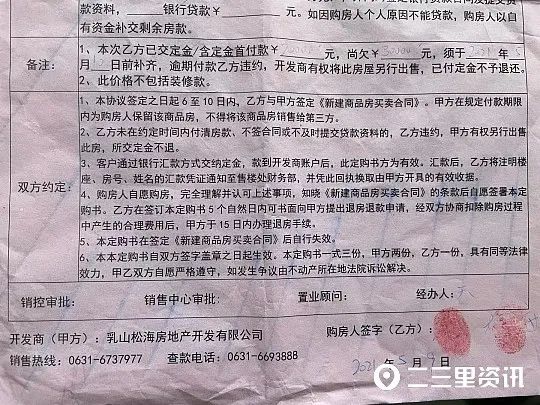 款资料，银行贷款¥元。如因购房人个人原因不能贷款，购房人以自
有资金补交剩余房款。
备注：
1、本次乙方已交定金/含定金首付款¥20000元，尚欠¥30000元，须于2021年5
月日前补齐，逾期付款乙方违约，开发商有权将此房屋另行出售，已付定金不予退还。
2、此价格不包括装修款。
双方约定：
1、本协议签定之日起 6 至 10 日内，乙方与甲方签定《新建商品房买卖合同》。甲方在规定付款期限
内为购房人保留该商品房，不得将该商品房销售给第三方。
2、乙方未在约定时间内付清房款、不签合同或不及时提交贷款资料的，乙方违约，甲方有权另行出售此
房，所交定金不退。
3、客户通过银行汇款方式交纳定金，款到开发商账户后，此定购书方为有效。汇款后，乙方将注明楼
座、房号、姓名的汇款凭证通知至售楼处财务部，并凭此回执换取由甲方开具的有效收据。
4、购房人自愿购房，完全理解并认可上述事项，知晓《新建商品房买卖合同》的条款后自愿签署本定
购书。乙方在签订本定购书 5 个自然日内可书面向甲方提出退房退款申请，经双方协商扣除购房过程
中产生的合理费用后，甲方于 15 日内办理退房手续。
5、本定购书在签定《新建商品房买卖合同》后自行失效。
6、本本定购书自双方签字盖章之日起生效。本定购书一式三份，甲方两份，乙方一份，具有同等法律
效力，甲乙双方自愿严格遵守，如发生争议由不动产所在地法院诉讼解决。
销控审批： 销售中心审批： 置业顾问： 经办人：
开发商（甲方）：乳山松海房地产开发有限公司 购房人签字（乙方）：
销售热线：0631-6737977 查款电话：0631-6693888
2021年5月9日
二三里资讯